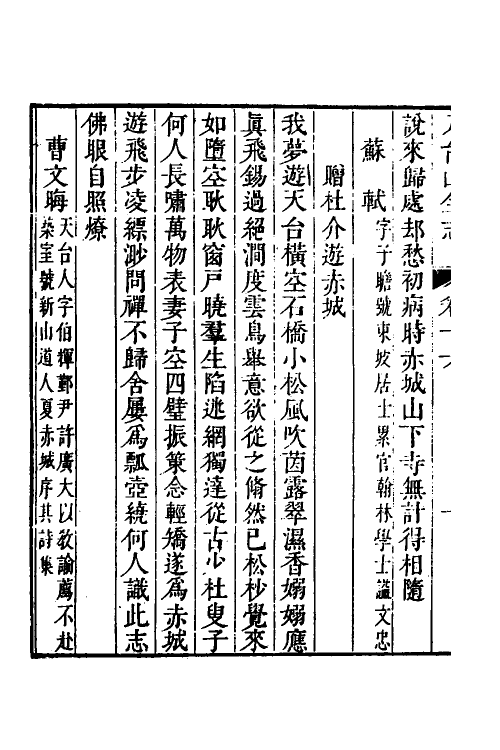 說來歸處却愁初病時赤城山下寺無計得相隨
蘇軾字子瞻號東坡居士累官翰林學士諡文忠
贈杜介遊赤城
我夢遊天台橫空石橋小松風吹茵露翠濕香嫋嫋應
眞飛錫過絕澗度雲鳥舉意欲從之翛然已松杪覺來
如墮空耿耿窗戶曉羣生陷迷網獨達從古少杜叟子
何人長嘯萬物表妻子空四壁振策念輕矯遂爲赤城
遊飛步凌縹渺問禪不歸舍屢爲瓢壺繞何人識此志
佛眼自照燎
曹文晦天台人字伯輝鄞尹許廣大以敎諭薦不赴
榮室號新山道人夏赤城序其詩集